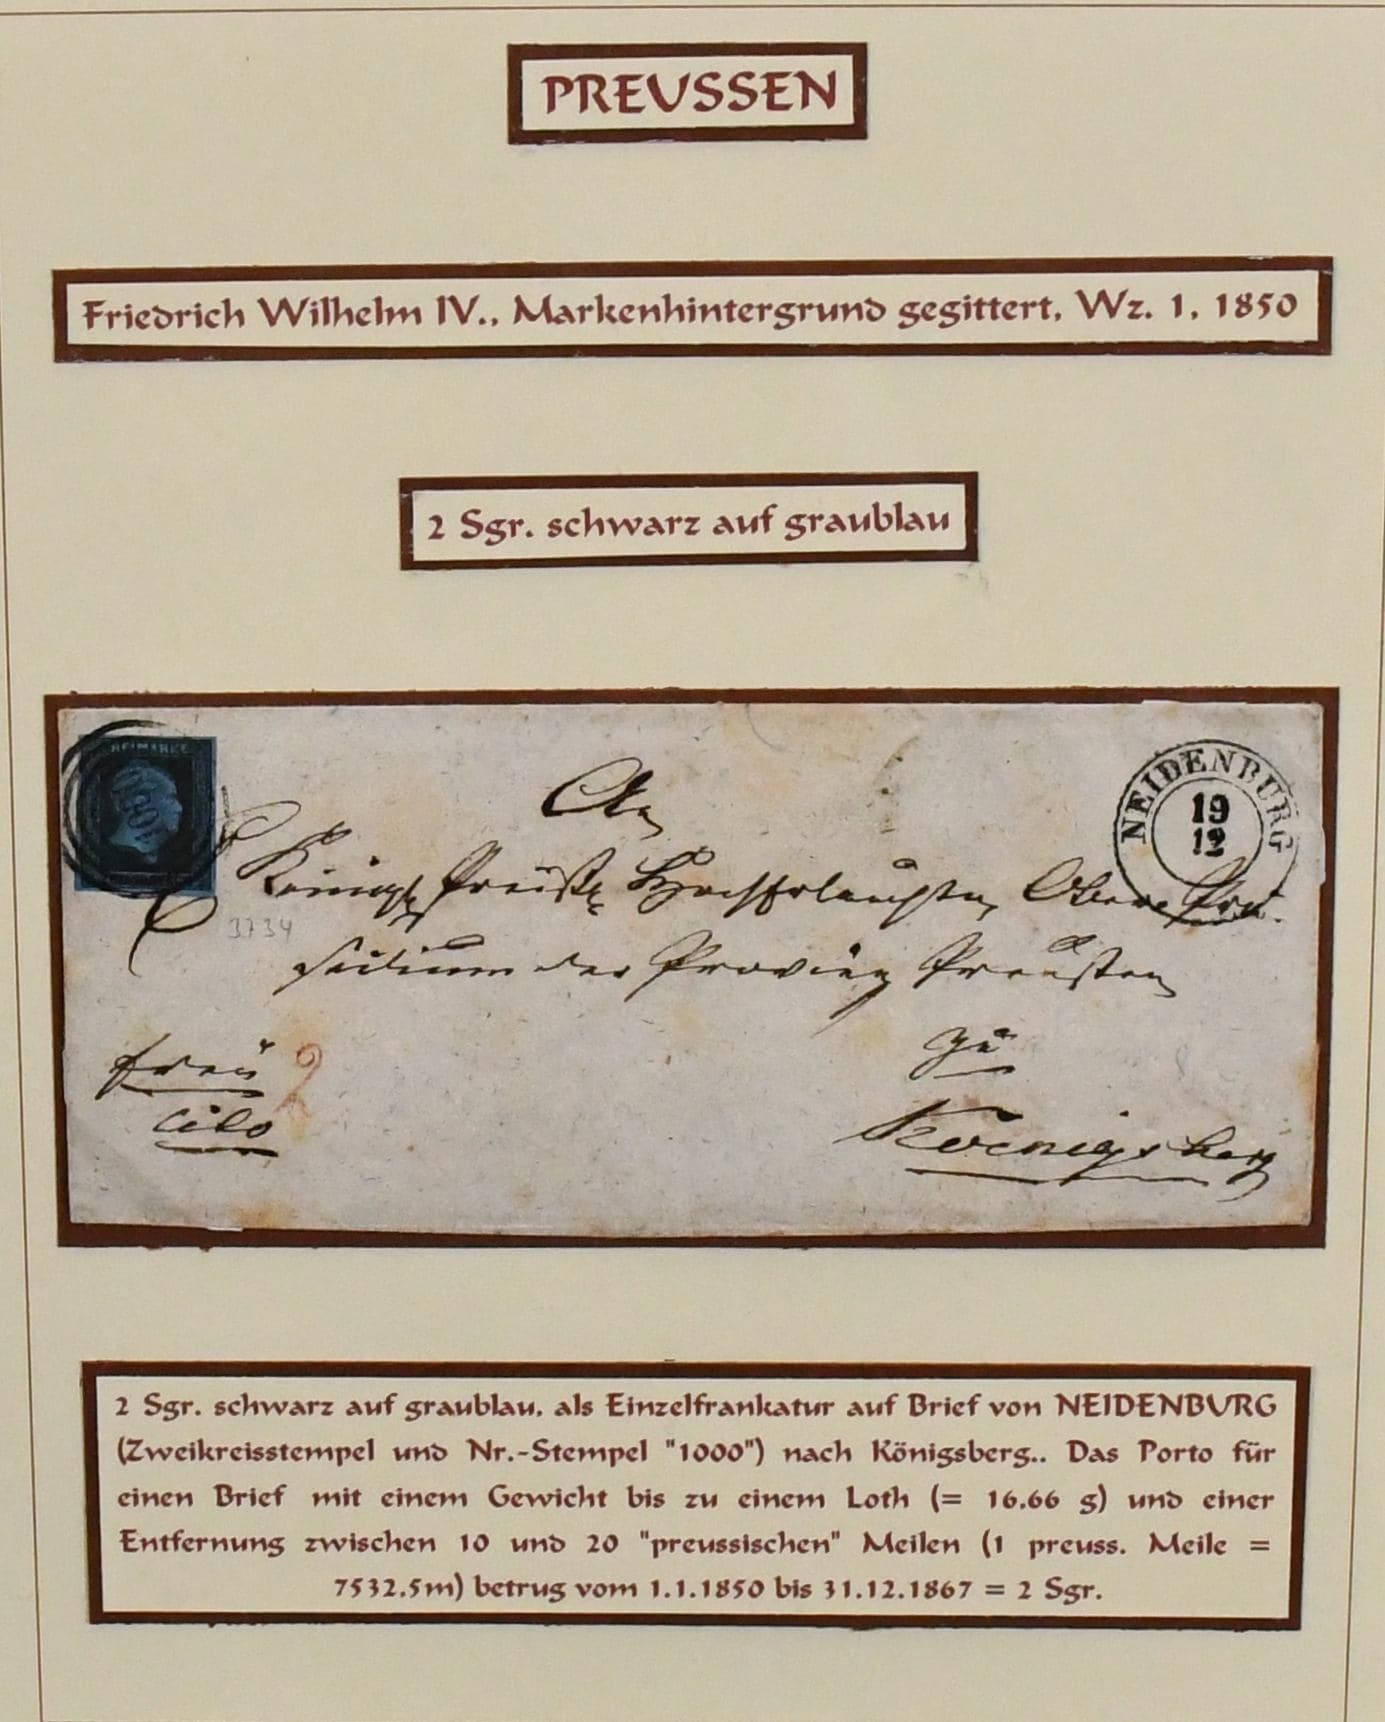 PREUSSEN
Friedrich Wilhelm IV., Markenhintergrund gegittert, Wz. 1, 1850
2 Sgr. schwarz auf graublau
REIMARKE
NEIDENBURG
19
12
An
Königl. Preuß. Hocherlauchten Ober Prä-
sidium der Provinz Preußen
3734
frei
2
zu
cito
Koenigsberg
2 Sgr. schwarz auf graublau, als Einzelfrankatur auf Brief von NEIDENBURG
(Zweikreisstempel und Nr.-Stempel "1000") nach Königsberg.. Das Porto für
einen Brief mit einem Gewicht bis zu einem Loth (= 16.66 g) und einer
Entfernung zwischen 10 und 20 "preussischen" Meilen (1 preuss. Meile =
7532,5m) betrug vom 1.1.1850 bis 31.12.1867 = 2 Sgr.